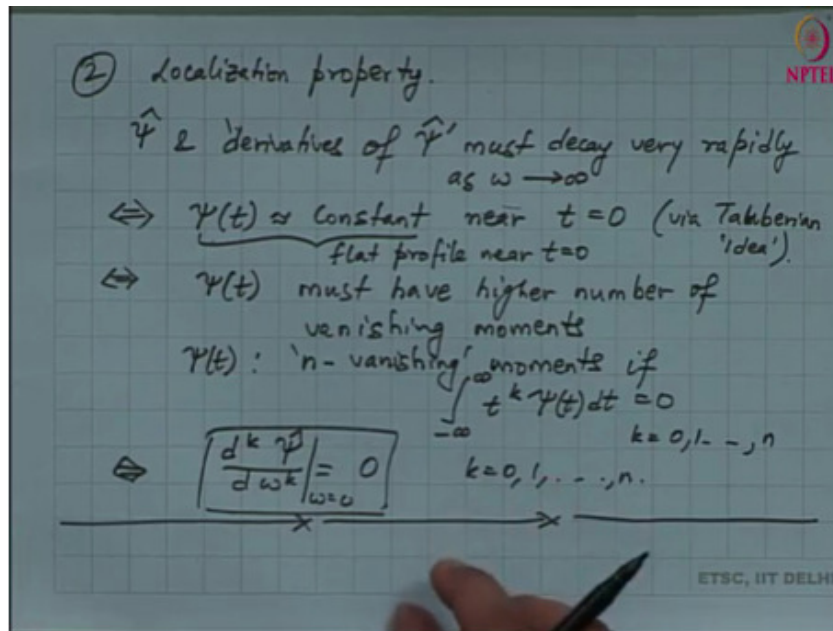 ② Localization property.
NPTEL
Ψ̂ & 'derivatives of Ψ̂' must decay very rapidly
as ω → ∞
⇔ Ψ(t) ≈ constant near t = 0 (via Tauberian
'Idea').
flat profile near t=0
⇔ Ψ(t) must have higher number of
vanishing moments
Ψ(t) : 'n-vanishing' moments if
∫_{-∞}^{∞} t^k Ψ(t) dt = 0
k = 0, 1 - - , n
⇔ d^k Ψ̂ / d ω^k |_{ω=0} = 0 k = 0, 1, . . . ., n.
ETSC, IIT DELHI